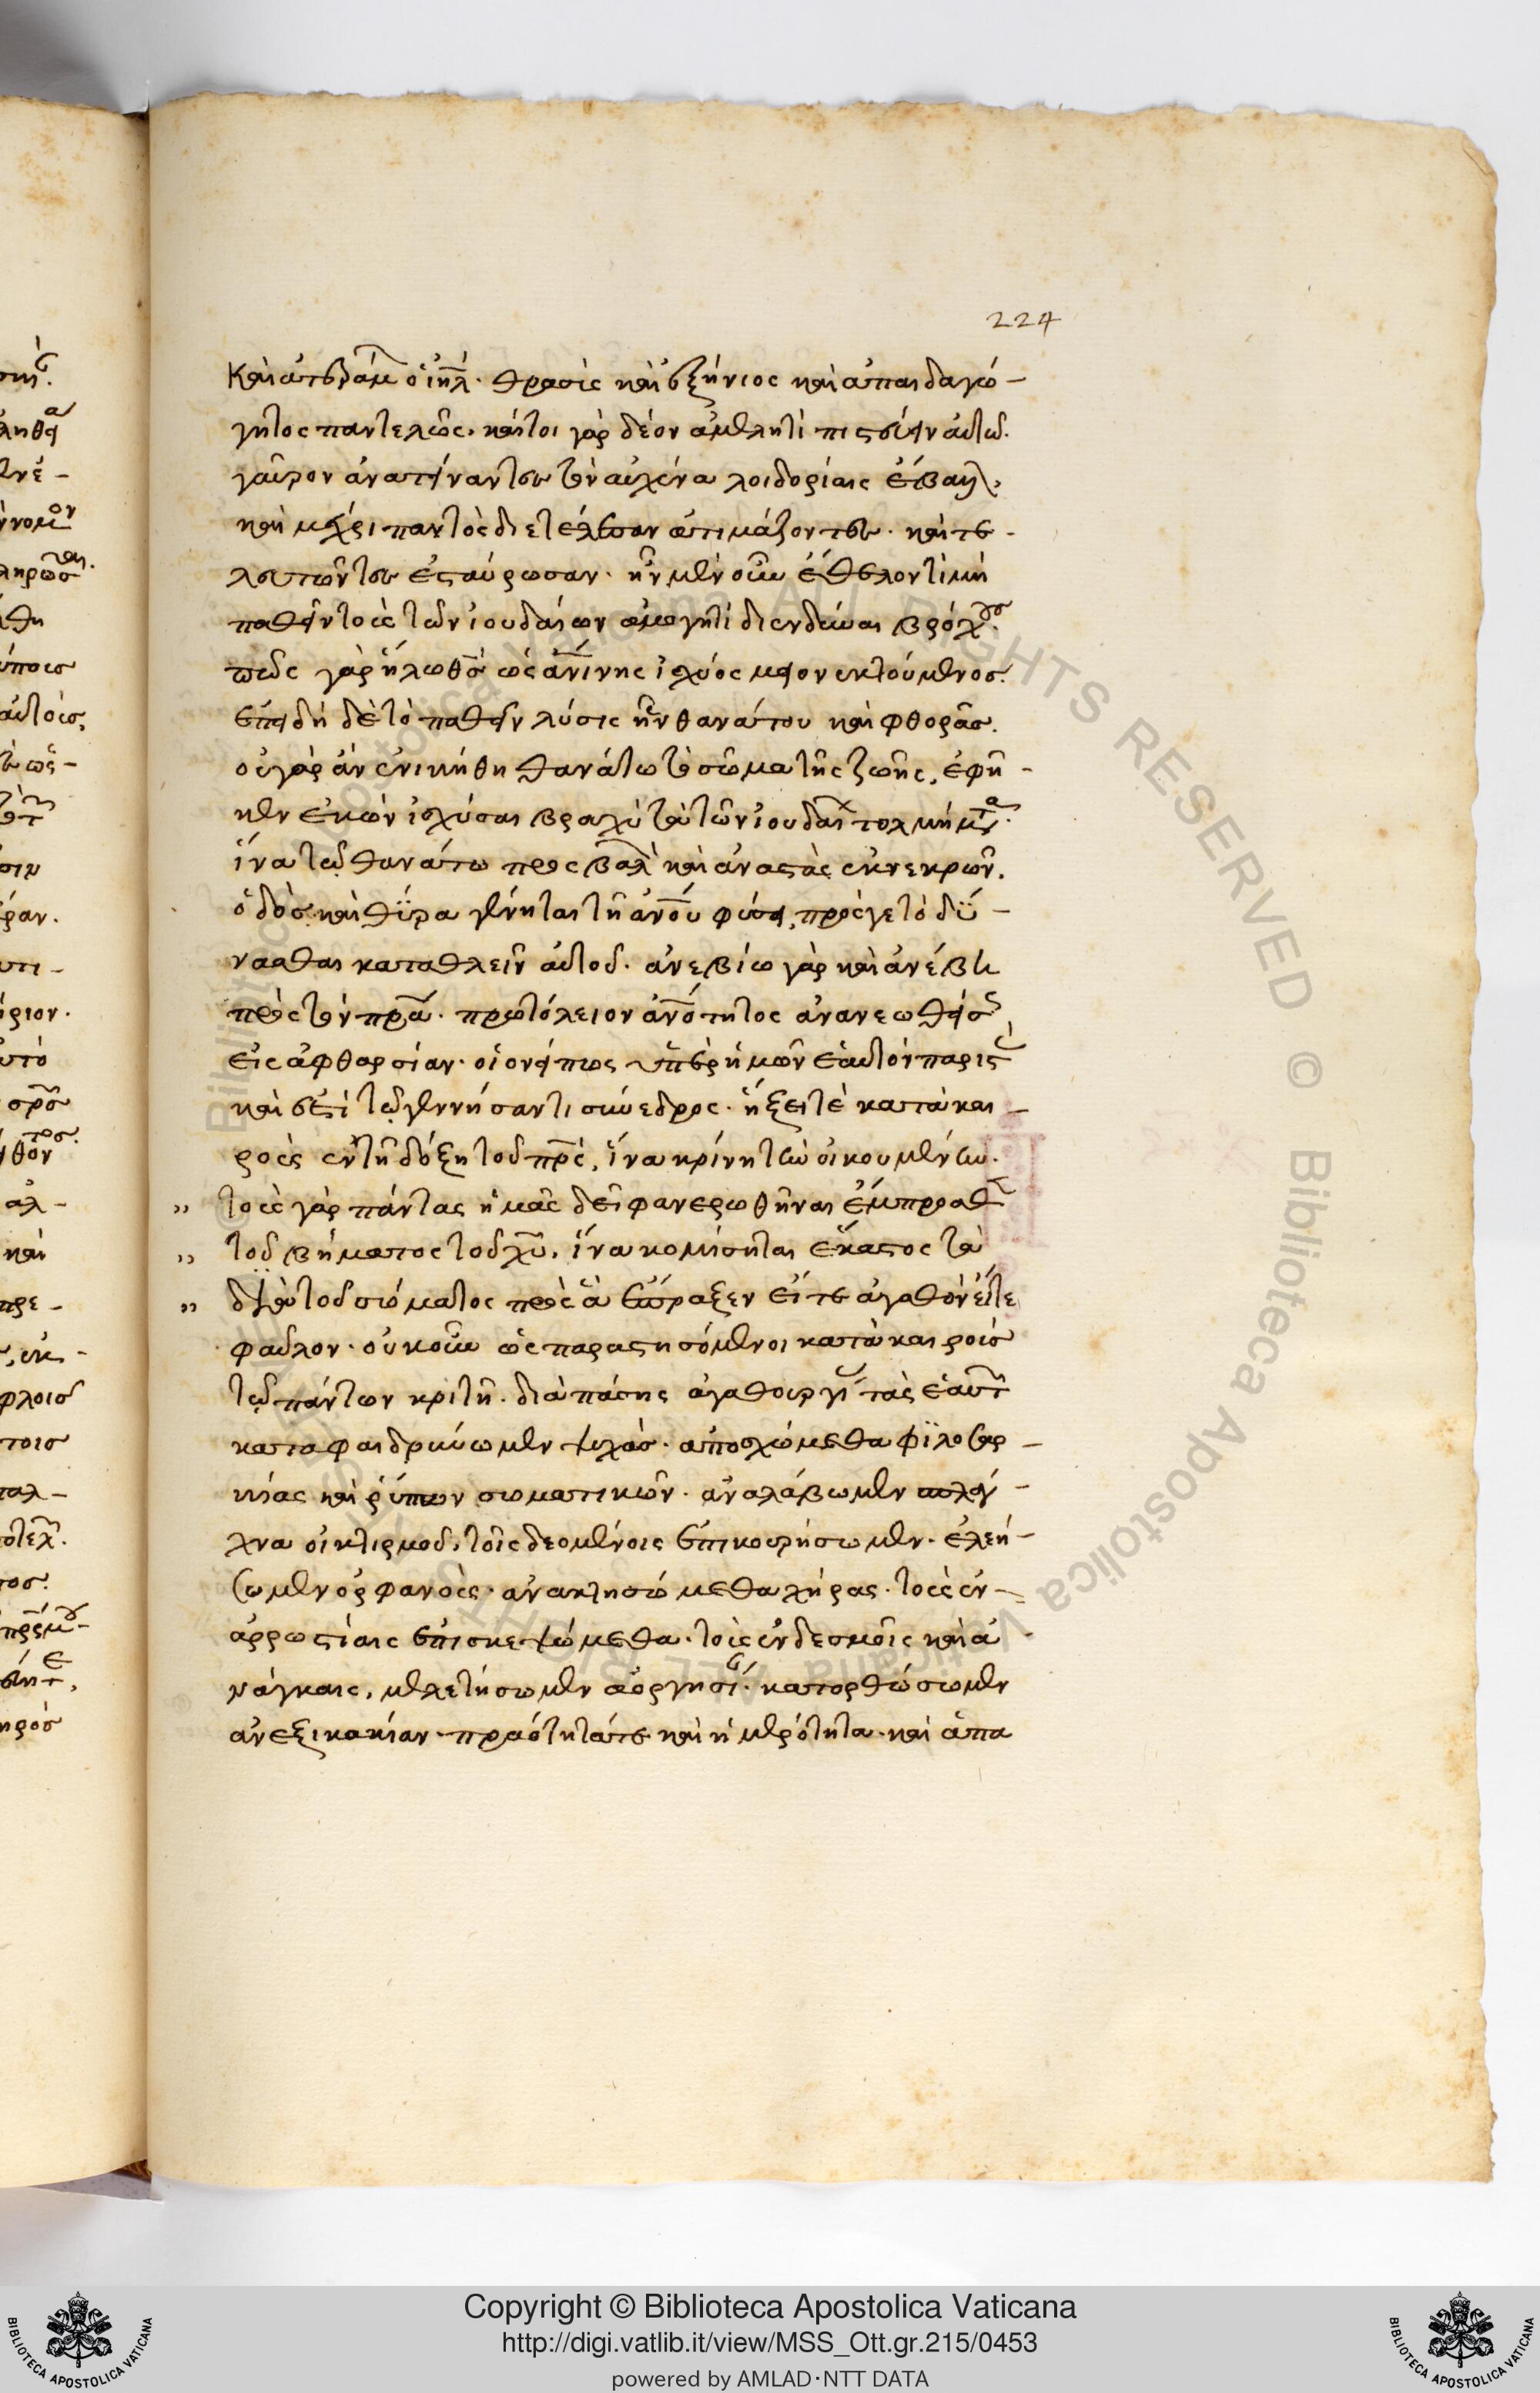 224
Καὶ ἀπέδραμ ὁ ἰηλ. θρασὺς καὶ ἐξήνιος καὶ ἀπαιδαγώ-
γητος παντελῶς. καίτοι γὰρ δέον ἀμελητὶ πιστεύειν αὐτῶ.
γαῦρον ἀνατείναντες τὸν αὐχένα λοιδορίαις ἔβαλλ.
καὶ μέχρι παντὸς διετέλεσαν ἀτιμάζοντες. καὶ τε-
λευτῶντες ἐσταύρωσαν. ἦν μὲν οὖν ἐθελοντὶ μὴ
παθεῖν τοὺς τῶν ἰουδαίων ἀμογητὶ διενδῦναι βρόχους.
πῶς γὰρ ἥλω θς ὡς ἀνίνης ἰσχύος μεῖον ἐκτούμενος.
ἐπειδὴ δὲ τὸ παθεῖν λύσις ἦν θανάτου καὶ φθορᾶς.
οὐ γὰρ ἂν ἐνικήθη θανάτω τὸ σῶμα τῆς ζωῆς, ἐφῆ-
κεν ἑκὼν ἰσχύσαι βραχὺ τὸ τῶν ἰουδαί τολμήματα.
ἵνα τῶ θανάτω προςβαλ καὶ ἀναστὰς ἐκ νεκρῶν.
ὁδὸς καὶ θύρα γένηται τῆ ἀνου φύσει, πρός γε τὸ δύ-
νασθαι καταθλεῖν αὐτοῦ. ἀνεβίω γὰρ καὶ ἀνέβη
πρὸς τὸν πρα. πρωτόλειον ἀνότητος ἀνανεωθείσ
εἰς ἀφθαρσίαν. οἱονείπως ὑπὲρ ἡμῶν ἑαυτὸν παριστ
καὶ ἔστι τῶ γεννήσαντι σύνεδρος. ἥξει τὲ κατὰ και-
ροὺς ἐν τῆ δόξη τοῦ πρς, ἵνα κρίνη τὴν οἰκουμένην.
„ τοὺς γὰρ πάντας ἡμᾶς δεῖ φανερωθῆναι ἔμπροσθ
„ τοῦ βήματος τοῦ χυ, ἵνα κομίσηται ἕκαστος τὰ
„ διὰ τοῦ σώματος πρὸς ἃ ἔπραξεν εἴτε ἀγαθὸν εἴτε
φαῦλον. οὐκοῦν ὡς παραστησόμενοι κατὰ καιροὺς
τῶ πάντων κριτῆ. διὰ πάσης ἀγαθουργί τὰς ἑαυτ
καταφαιδρύνωμεν ψυχάς. ἀποσχώμεθα φιλοσαρ-
κίας καὶ ῥύπων σωματικῶν. ἀναλάβωμεν σπλάγ-
χνα οἰκτιρμοῦ. τοῖς δεομένοις ἐπικουρήσωμεν. ἐλεή-
σωμεν ὀρφανοὺς. ἀνακτησώμεθα χήρας. τοὺς ἐν
ἀρρωστίαις ἐπισκεψώμεθα. τοὺς ἐν δεσμοῖς καὶ ἀ-
νάγκαις, μελετήσωμεν ἀοργησί. κατορθώσωμεν
ἀνεξικακίαν. πραότητάτε καὶ ἡμερότητα. καὶ ἅπα
Copyright © Biblioteca Apostolica Vaticana
http://digi.vatlib.it/view/MSS_Ott.gr.215/0453
powered by AMLAD·NTT DATA
BIBLIOTECA APOSTOLICA VATICANA
BIBLIOTECA APOSTOLICA VATICANA